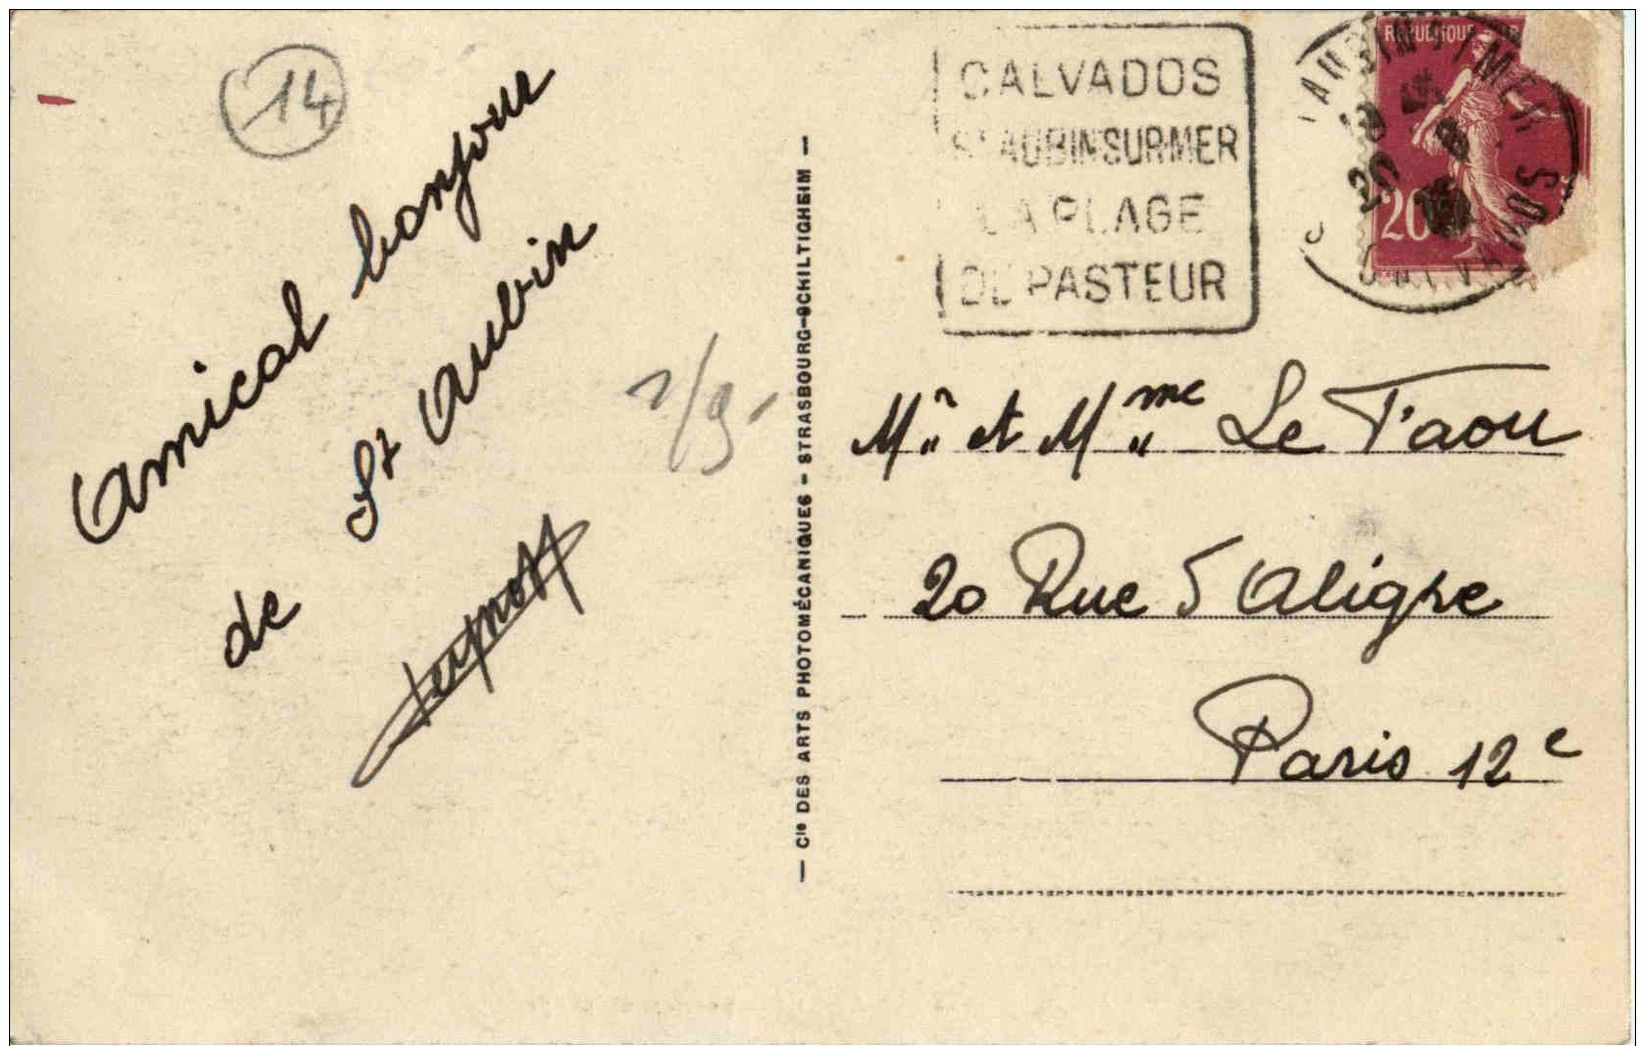 14
Amical bonjour
de St Aubin
2/9.
— Cie DES ARTS PHOTOMÉCANIQUES - STRASBOURG-SCHILTIGHEIM —
CALVADOS
St AUBIN SUR MER
LA PLAGE
DE PASTEUR
REPUBLIQUE
20
AUBIN S/MER
CALVADOS
Mr et Mme Le Faou
20 Rue d'Aligre
Paris 12e